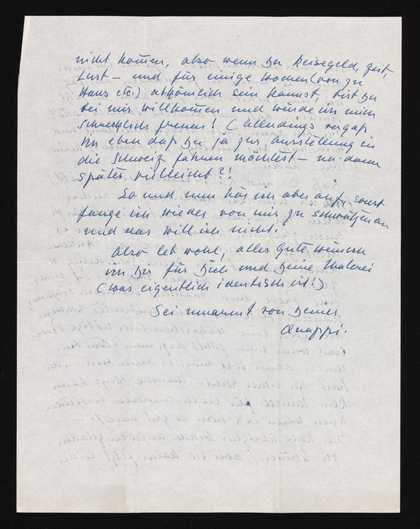 nicht kommen, also wenn Du Reisegeld, Zeit,
Lust – und für einige Wochen (von zu
Haus etc.) abkömmlich sein kannst, bist Du
bei mir willkommen und würde ich mich
schrecklich freuen! (Allerdings vergaß
ich eben daß Du ja zur Ausstellung in
die Schweiz fahren möchtest – na dann
später vielleicht?!
So und nun hör ich aber auf, sonst
fange ich wieder von mir zu schwätzen an
und das will ich nicht.
Also leb wohl, alles Gute wünsch
ich Dir für Dich und Deine Malerei
(was eigentlich identisch ist!)
Sei umarmt von Deiner
Quappi.